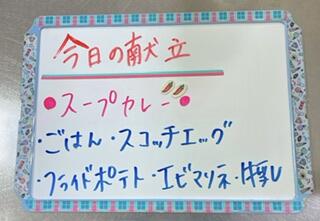 今日の献立
●スープカレー●
・ごはん・スコッチエッグ
・フライドポテト・エビマヨネ・